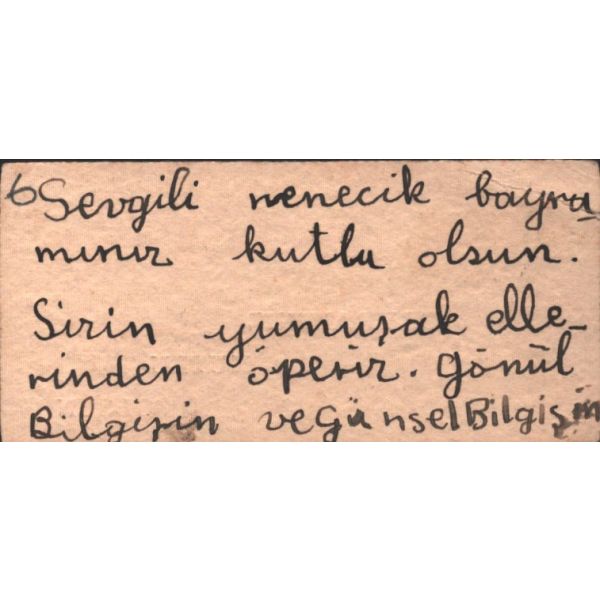 6 Sevgili nenecik bayra
mınız kutlu olsun.
Sirin yumuşak elle-
rinden öperiz. Gönül
Bilgişin ve Günsel Bilgişin